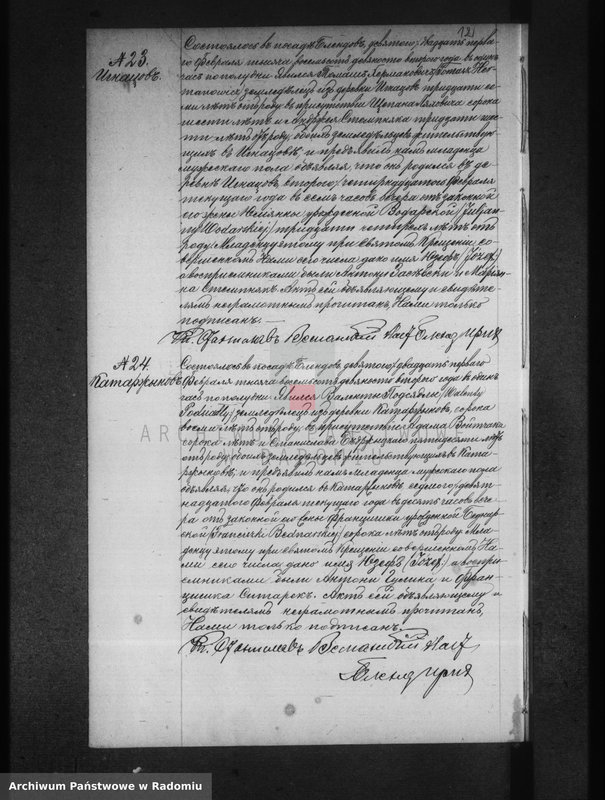 121
№ 23.
Игнацовъ.
Состоялось въ посадѣ Блендовъ, девятаго/двадцать перва-
го Февраля тысяча восемьсотъ девяносто второго года въ одинъ
часъ пополудни. Явился
земледѣлецъ изъ деревни Игнацовъ тридцати се-
ми лѣтъ отъ роду, въ присутствіи Щепана сорока
шести лѣтъ и Андржея Стемпняка тридцати шес-
ти лѣтъ отъ роду, обоихъ земледѣльцевъ жительствую-
щихъ въ Игнацовѣ и предъявилъ намъ младенца
мужескаго пола объявляя, что онъ родился въ де-
ревнѣ Игнацовъ, второго/четырнадцатаго Февраля
текущаго года въ семь часовъ вечера отъ законной
его жены урожденной Водарской /Juljan-
ny Wodarskiej/ тридцати четырехъ лѣтъ отъ
роду. Младенцу этому при Святомъ Крещеніи со-
вершенномъ Нами сего числа дано имя Юзефъ /Józef/
а воспріемниками были Антоній и Марья-
на Стемпнякъ. Актъ сей объявляющему и свидѣте-
лямъ неграмотнымъ прочитанъ, Нами только
подписанъ.
№ 24.
Катаржиновъ.
Состоялось въ посадѣ Блендовъ, девятаго/двадцать перваго
Февраля тысяча восемьсотъ девяносто второго года въ одинъ
часъ пополудни. Явился Валенты Подсядлы /Walenty
Podsiadły/ земледѣлецъ изъ деревни Катаржиновъ, сорока
восьми лѣтъ отъ роду, въ присутствіи Адама Войтчака
сорока лѣтъ и Станислава пятидесяти лѣтъ
отъ роду, обоихъ земледѣльцевъ жительствующихъ въ Ката-
ржиновѣ, и предъявилъ намъ младенца мужескаго пола
объявляя, что онъ родился въ Катаржиновѣ седьмого/девят-
надцатаго Февраля текущаго года въ десять часовъ вече-
ра отъ законной его жены Францишки урожденной Беднар-
ской /Franciszki Bednarskiej/ сорока лѣтъ отъ роду. Мла-
денцу этому при Святомъ Крещеніи совершенномъ На-
ми сего числа дано имя Юзефъ /Józef/, а воспріе-
мниками были Антоній Гулика и Фран-
цишка Ситарекъ. Актъ сей объявляющему и
свидѣтелямъ неграмотнымъ прочитанъ,
Нами только подписанъ.
ARCHIWUM PAŃSTWOWE
W RADOMIU
Archiwum Państwowe w Radomiu